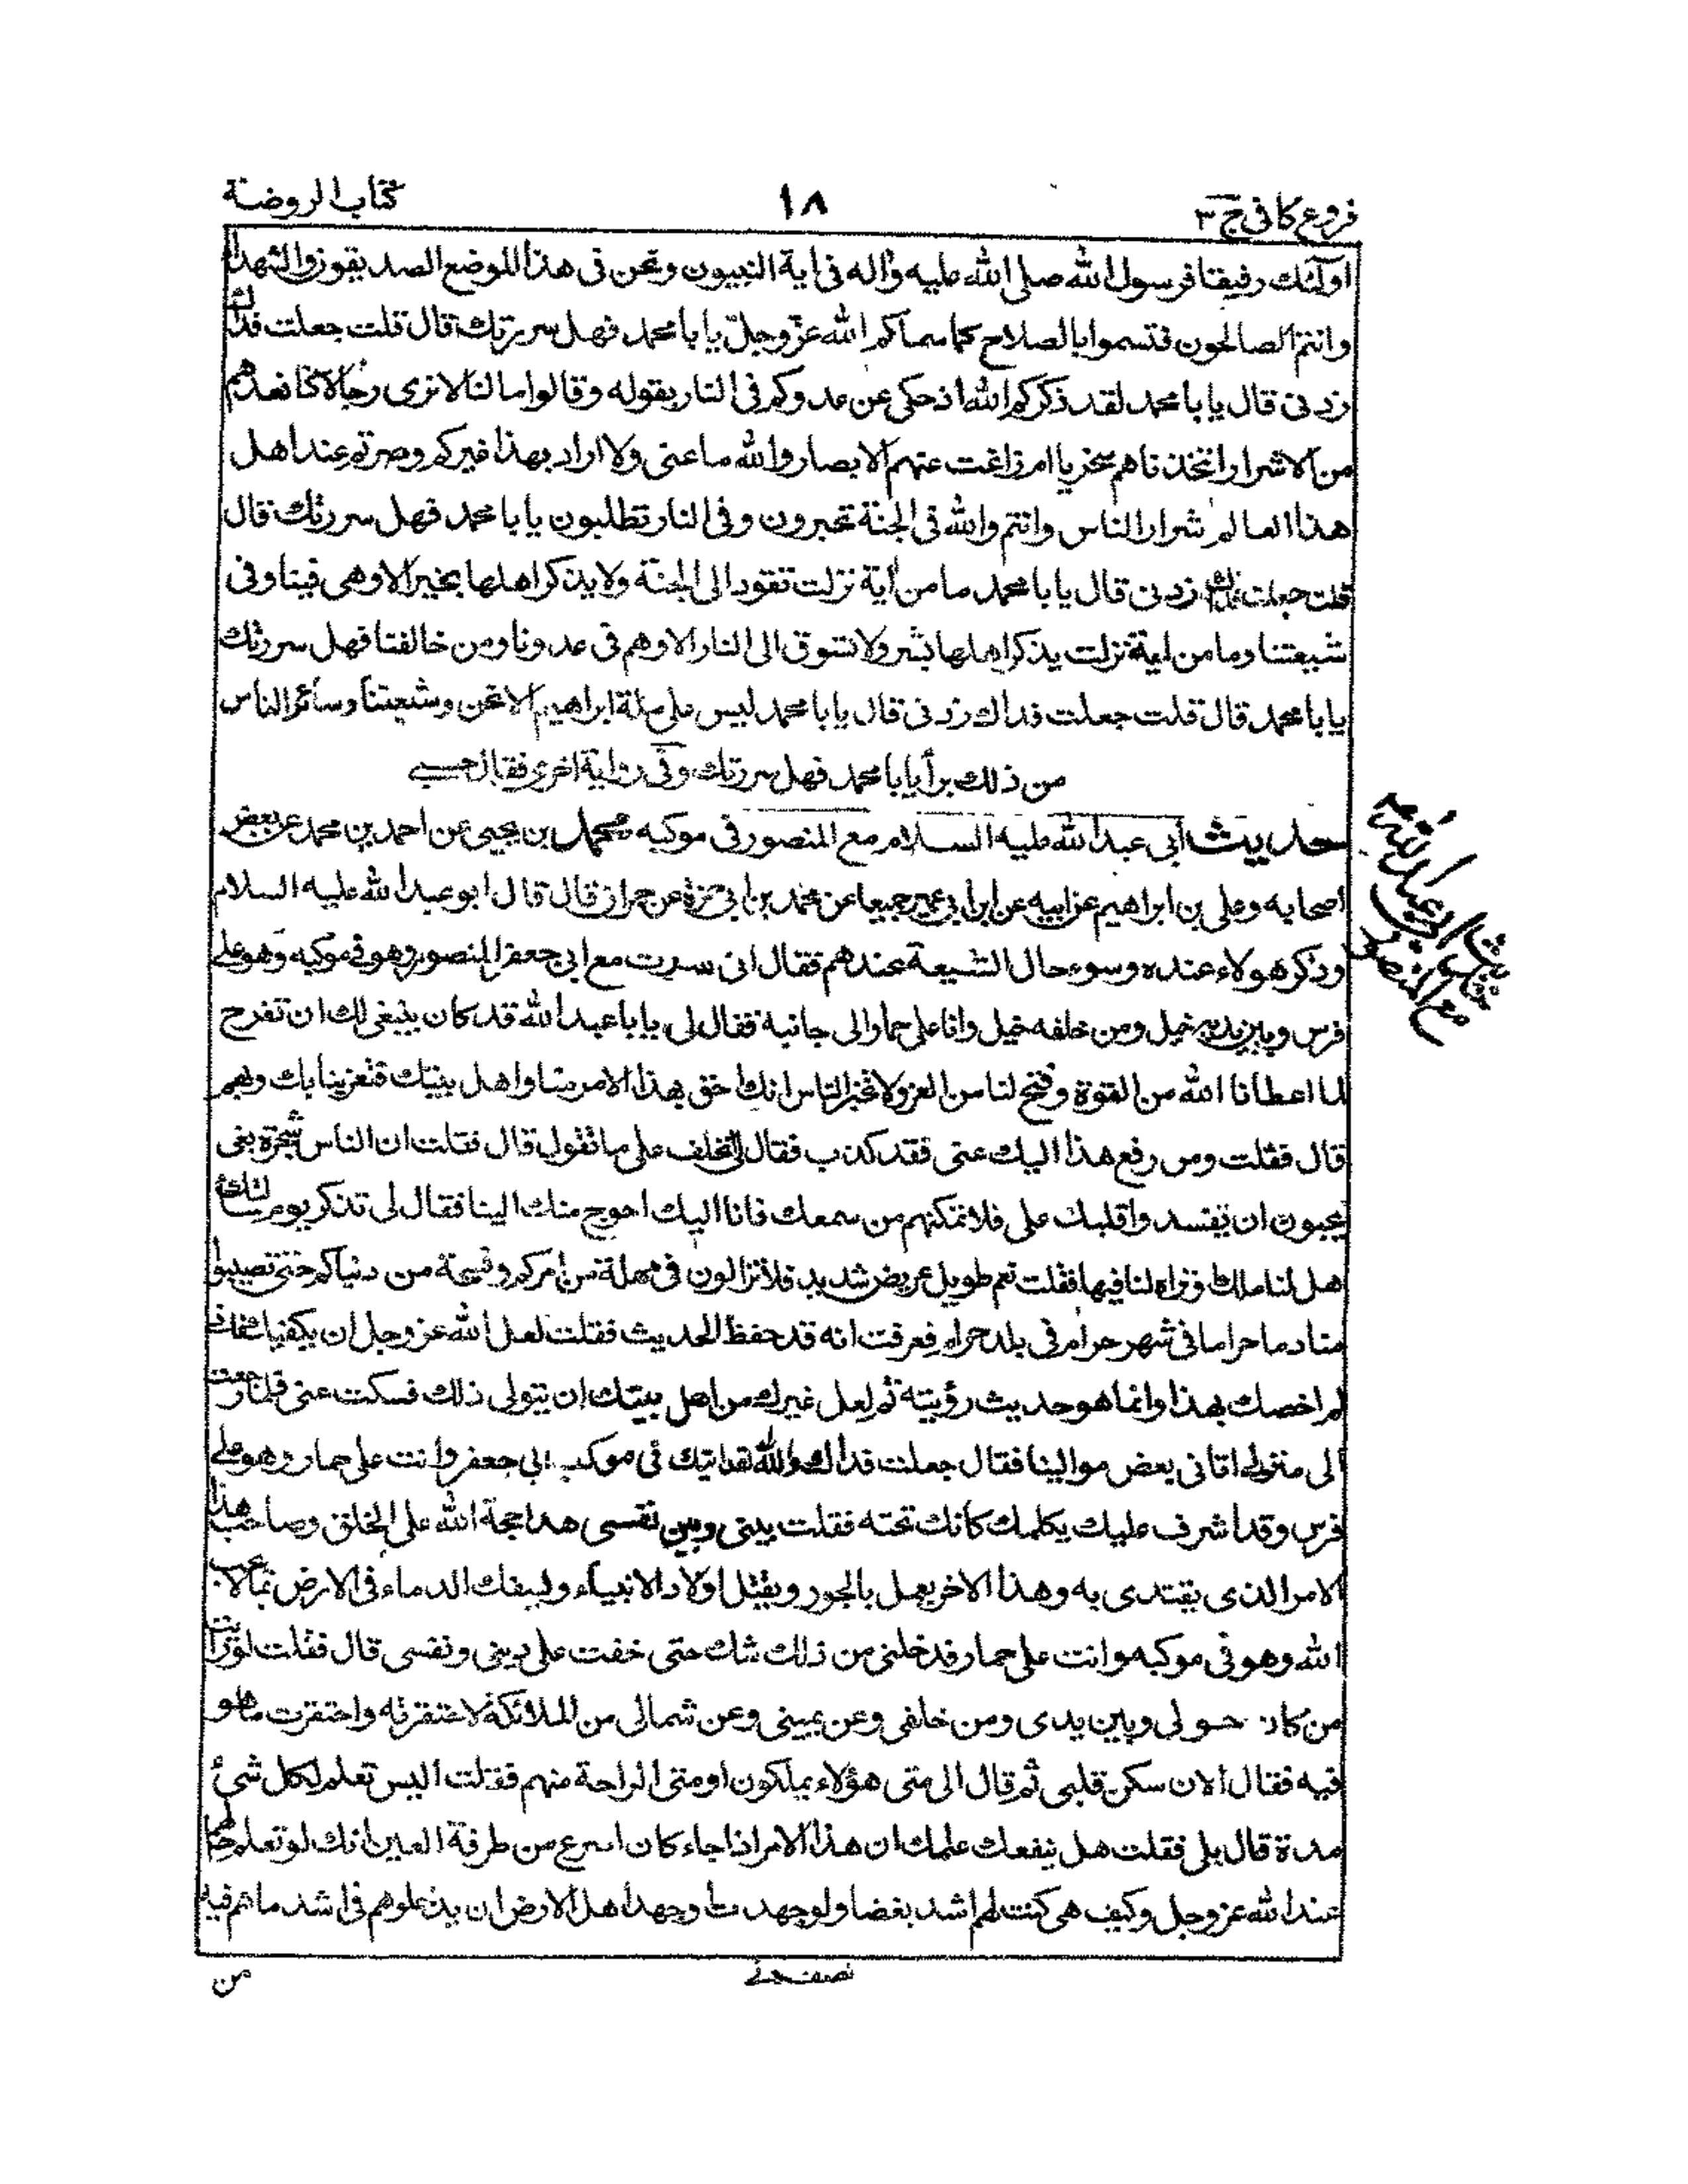 فروع كافى ج ٣
١٨
كتاب الروضة
اولٓئك رفيقا فرسول الله صلى الله عليه وآله فى اية النبيون ونحن فى هذا الموضع الصديقون والشهداء
وانتم الصالحون فتسموا بالصلاح كما سماكم الله عزّ وجلّ يا با محمد فهل سررتك قال قلت جعلت فداك
زدنى قال يا با محمد لقد ذكركم الله اذ حكى عن عدوكم فى النار بقوله وقالوا ما لنا لا نرى رجالا كنا نعدهم
من الاشرار اتخذناهم سخريا ام زاغت عنهم الابصار والله ما عنى ولا اراد بهذا غيركم وصرتم عند اهل
هذا العالم شرار الناس وانتم والله فى الجنة تحبرون وفى النار تطلبون يا با محمد فهل سررتك قال
قلت جعلت فداك زدنى قال يا با محمد ما من آية نزلت تقود الى الجنة ولا يذكر اهلها بخير الا وهى فينا وفى
شيعتنا وما من اية نزلت يذكر اهلها بشر ولا تسوق الى النار الا وهم فى عدونا ومن خالفنا فهل سررتك
يا با محمد قال قلت جعلت فداك زدنى قال يا با محمد ليس على ملة ابراهيم الا نحن وشيعتنا وسائر الناس
من ذلك برآ يا با محمد فهل سررتك وفى رواية اخرى فقال حسبى
حديث أبى عبد الله عليه السلام مع المنصور فى موكبه محمد بن يحيى عن احمد بن محمد عن بعض
اصحابه وعلى بن ابراهيم عن ابيه عن ابن ابى عمير جميعا عن محمد بن ابى حمزة عن حمران قال قال ابو عبد الله عليه السلام
وذكر هولاء عنده وسوء حال الشيعة عندهم فقال انى سرت مع ابى جعفر المنصور وهو فى موكبه وهو على
فرس وبين يديه خيل ومن خلفه خيل وانا على حمار الى جانبه فقال لى يا با عبد الله قد كان ينبغى لك ان تفرح
لما اعطانا الله من القوة وفتح لنا من العز ولا تخبر الناس انك احق بهذا الامر منا واهل بيتك فتغرينا بك وبهم
قال فقلت ومن رفع هذا اليك عنى فقد كذب فقال لى اتحلف على ما تقول قال فقلت ان الناس سحرة يعنى
يحبون ان يفسدوا قلبك على فلا تمكنهم من سمعك فانا اليك احوج منك الينا فقال لى تذكر يوم سالتك
هل لنا ملك فقلت نعم طويل عريض شديد فلا تزالون فى مهلة من امركم وفسحة من دنياكم حتى تصيبوا
منا دما حراما فى شهر حرام فى بلد حرام فعرفت انه قد حفظ الحديث فقلت لعل الله عز وجل ان يكفيك فانى
لم اخصك بهذا وانما هو حديث رويته ثم لعل غيرك من اهل بيتك ان يتولى ذلك فسكت عنى فلما رجعت
الى منزلى اتانى بعض موالينا فقال جعلت فداك والله لقد رايتك فى موكب ابى جعفر وانت على حمار وهو على
فرس وقد اشرف عليك يكلمك كانك تحته فقلت بينى وبين نفسى هذا حجة الله على الخلق وصاحب هذا
الامر الذى يقتدى به وهذا الاخر يعمل بالجور ويقتل اولاد الانبياء ويسفك الدماء فى الارض بما لا يحب
الله وهو فى موكبه وانت على حمار فدخلنى من ذلك شك حتى خفت على دينى ونفسى قال فقلت لو رأيت
من كان حولى وبين يدى ومن خلفى وعن يمينى وعن شمالى من الملائكة لاحتقرته واحتقرت ما هو
فيه فقال الان سكن قلبى ثم قال الى متى هؤلاء يملكون او متى الراحة منهم فقلت اليس تعلم لكل شئ
مدة قال بلى فقلت هل ينفعك علمك ان هذا الامر اذا جاء كان اسرع من طرفة العين انك لو تعلم حالهم
عند الله عز وجل وكيف هى كنت لهم اشد بغضا ولو جهدت وجهد اهل الارض ان يدخلوهم فى اشد ما هم فيه
من
حديث ابى عبد الله
مع المنصور